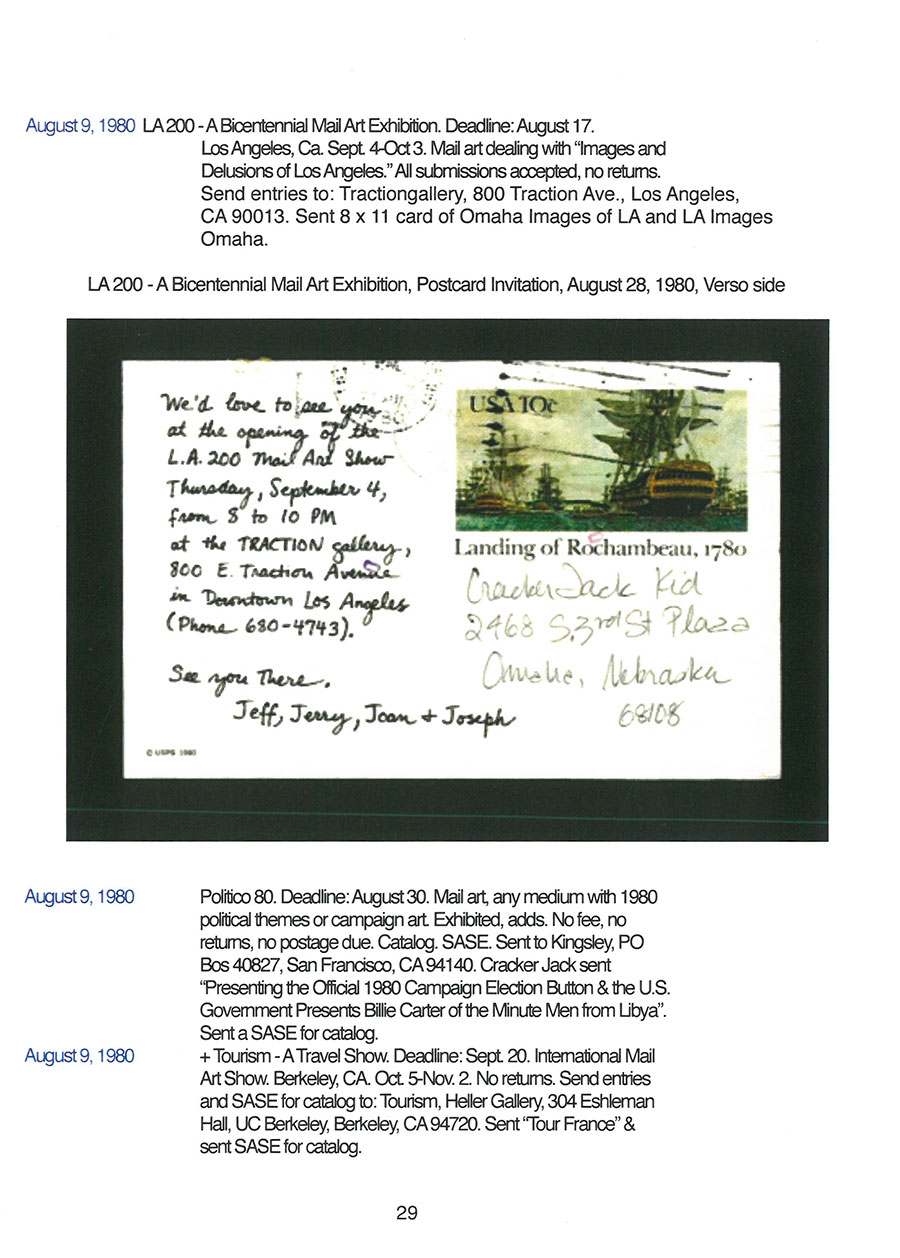 August 9, 1980 LA 200 - A Bicentennial Mail Art Exhibition. Deadline: August 17.
Los Angeles, Ca. Sept. 4-Oct 3. Mail art dealing with “Images and
Delusions of Los Angeles.” All submissions accepted, no returns.
Send entries to: Tractiongallery, 800 Traction Ave., Los Angeles,
CA 90013. Sent 8 x 11 card of Omaha Images of LA and LA Images
Omaha.
LA 200 - A Bicentennial Mail Art Exhibition, Postcard Invitation, August 28, 1980, Verso side
We'd love to see you
at the opening of the
L.A. 200 Mail Art Show
Thursday, September 4,
from 8 to 10 PM
at the TRACTION gallery,
800 E. Traction Avenue
in Downtown Los Angeles
(Phone 680-4743).
See you There.
Jeff, Jerry, Joan + Joseph
© USPS 1980
USA 10c
Landing of Rochambeau, 1780
CrackerJack Kid
2468 S. 3rd St Plaza
Omaha, Nebraska
68108
August 9, 1980 Politico 80. Deadline: August 30. Mail art, any medium with 1980
political themes or campaign art. Exhibited, adds. No fee, no
returns, no postage due. Catalog. SASE. Sent to Kingsley, PO
Bos 40827, San Francisco, CA 94140. Cracker Jack sent
“Presenting the Official 1980 Campaign Election Button & the U.S.
Government Presents Billie Carter of the Minute Men from Libya”.
Sent a SASE for catalog.
August 9, 1980 + Tourism - A Travel Show. Deadline: Sept. 20. International Mail
Art Show. Berkeley, CA. Oct. 5-Nov. 2. No returns. Send entries
and SASE for catalog to: Tourism, Heller Gallery, 304 Eshleman
Hall, UC Berkeley, Berkeley, CA 94720. Sent “Tour France” &
sent SASE for catalog.
29